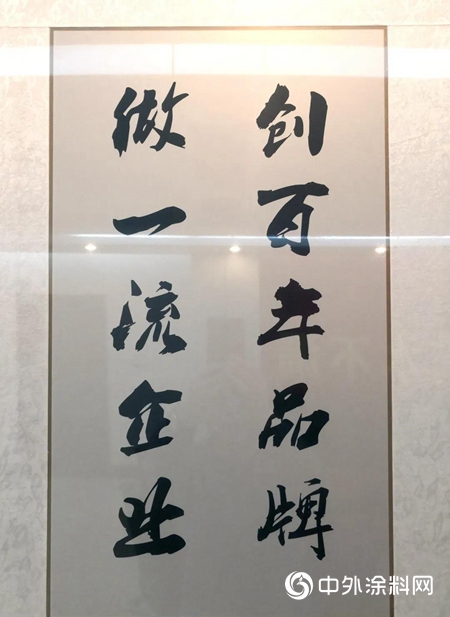 创百年品牌
做一流企业
中外涂料网